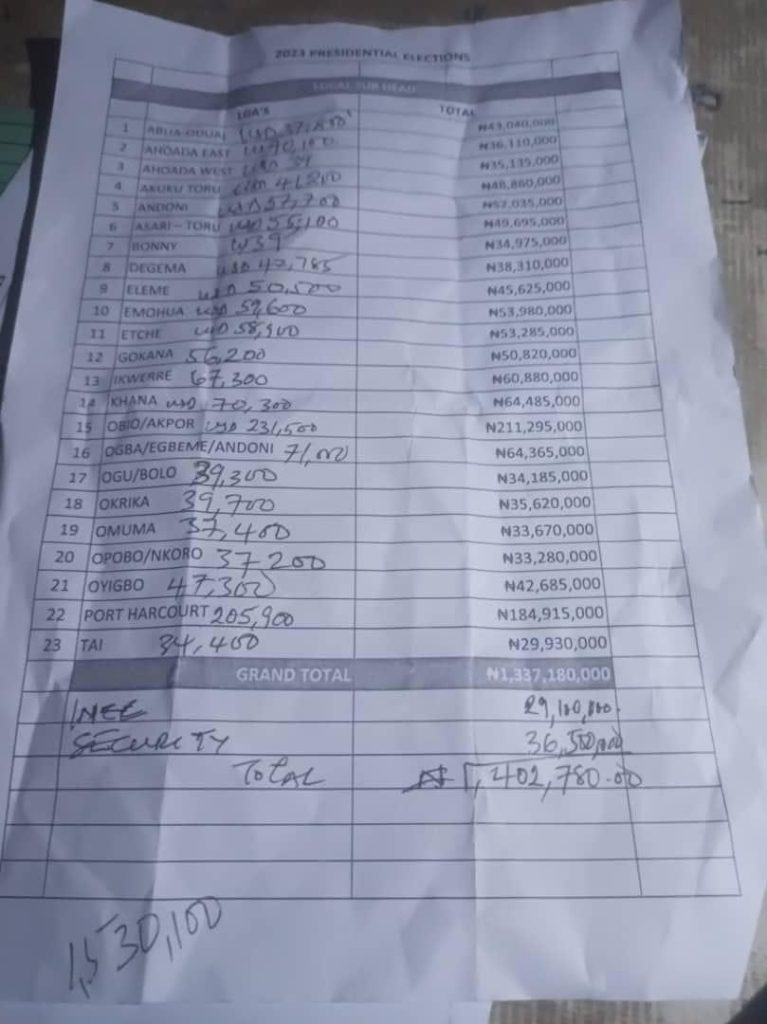 2023 PRESIDENTIAL ELECTIONS
LOCAL SUB HEAD
LGA'S TOTAL
1 ABUA-ODUAL USD ₦43,040,000
2 AHOADA EAST USD 40,100 ₦36,110,000
3 AHOADA WEST USD 39 ₦35,135,000
4 AKUKU TORU USD ₦48,860,000
5 ANDONI USD 57,700 ₦52,035,000
6 ASARI-TORU USD 55,100 ₦49,695,000
7 BONNY ₦34,975,000
8 DEGEMA USD 42,785 ₦38,310,000
9 ELEME USD 50,500 ₦45,625,000
10 EMOHUA USD 59,600 ₦53,980,000
11 ETCHE USD 58,900 ₦53,285,000
12 GOKANA 56,200 ₦50,820,000
13 IKWERRE 67,300 ₦60,880,000
14 KHANA USD 70,300 ₦64,485,000
15 OBIO/AKPOR USD 231,500 ₦211,295,000
16 OGBA/EGBEME/ANDONI 71,000 ₦64,365,000
17 OGU/BOLO 39,300 ₦34,185,000
18 OKRIKA 39,700 ₦35,620,000
19 OMUMA 37,400 ₦33,670,000
20 OPOBO/NKORO 37200 ₦33,280,000
21 OYIGBO 47,300 ₦42,685,000
22 PORT HARCOURT 205,900 ₦184,915,000
23 TAI 34,400 ₦29,930,000
GRAND TOTAL ₦1,337,180,000
INEC 29,100,000.
SECURITY 36,500,000
TOTAL ₦1,402,780.00
1,530,100